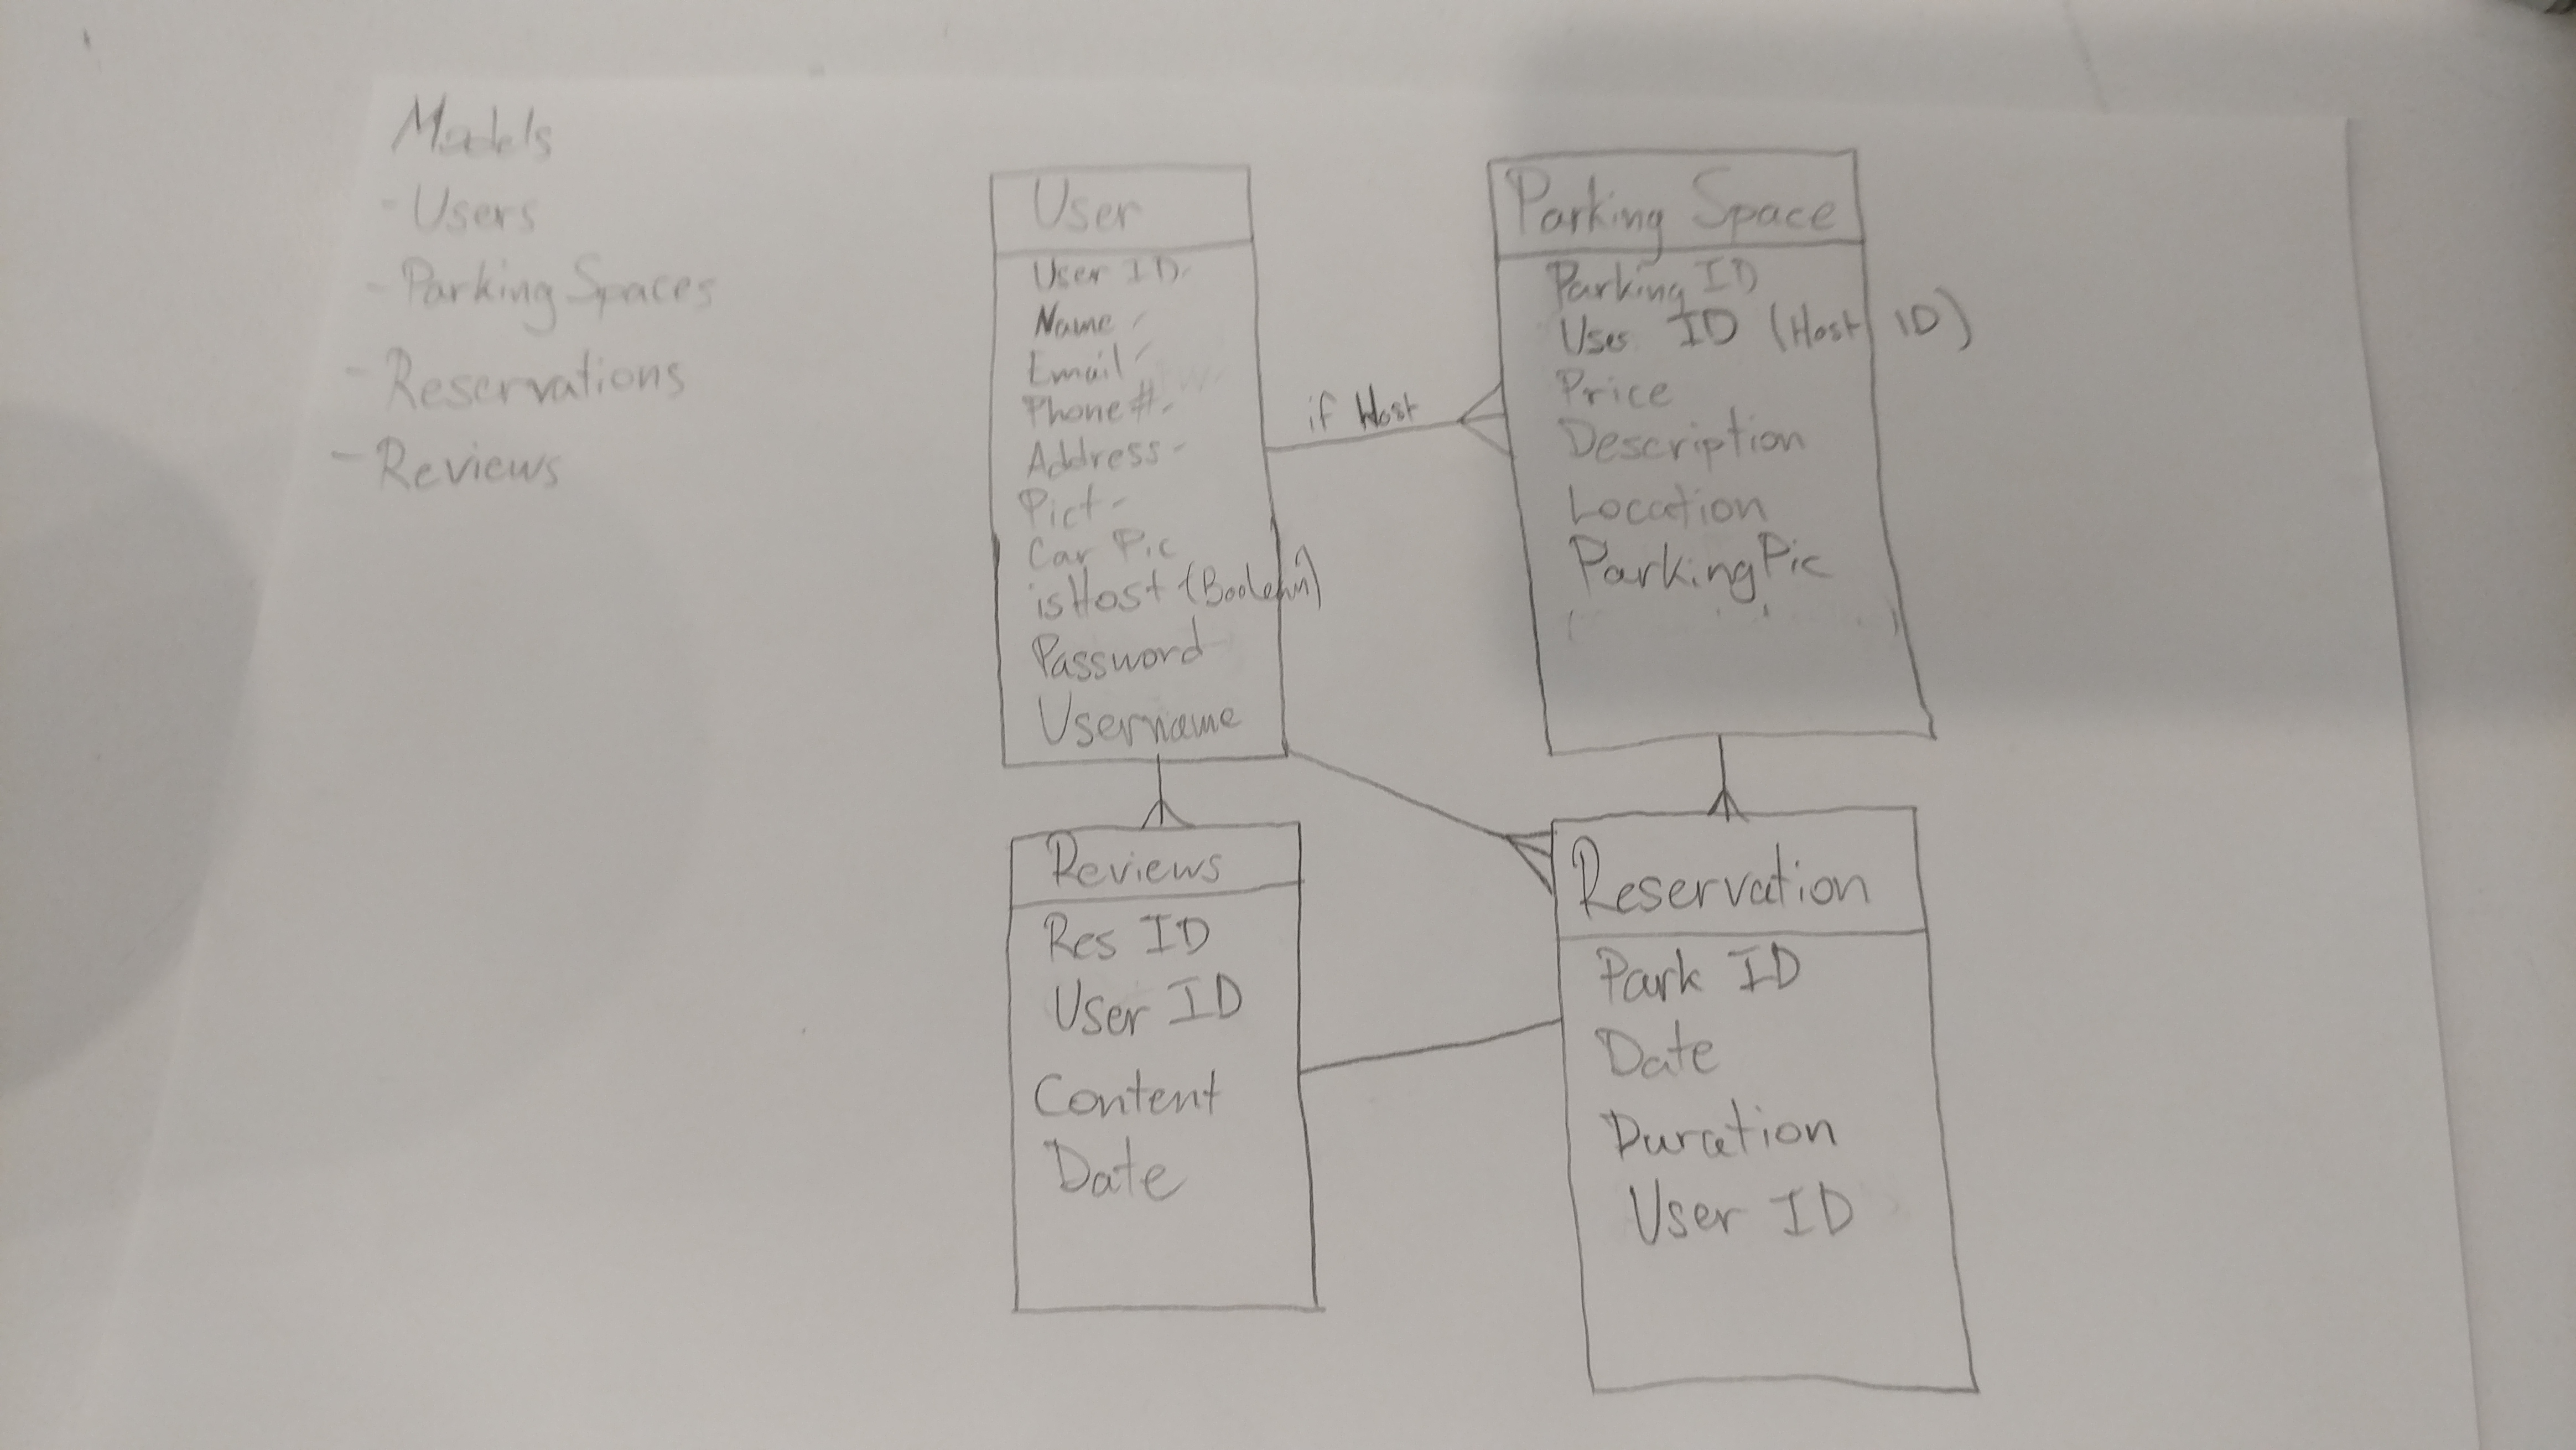 Models
- Users
- Parking Spaces
- Reservations
- Reviews
User
User ID
Name
Email
Phone #
Address
Pict
Car Pic
isHost (Boolean)
Password
Username
if Host
Parking Space
Parking ID
User ID (Host ID)
Price
Description
Location
ParkingPic
Reviews
Res ID
User ID
Content
Date
Reservation
Park ID
Date
Duration
User ID